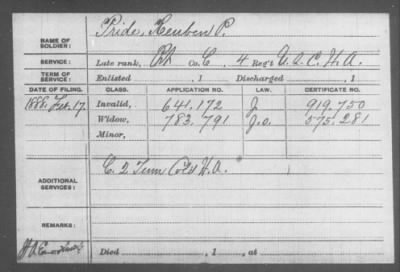 NAME OF SOLDIER: Pride, Reuben P.
SERVICE: Late rank, Pvt Co. C, 4 Reg't U.S.C.H.A.
TERM OF SERVICE: Enlisted , 1 Discharged , 1
DATE OF FILING. CLASS. APPLICATION NO. LAW. CERTIFICATE NO.
1888, Feb. 17 Invalid, 641.172 J. 919.750
Widow, 783.791 J.O. 575.281
Minor,
ADDITIONAL SERVICES: C. 2 Tenn Col'd H.A.
REMARKS:
Died , 1 , at